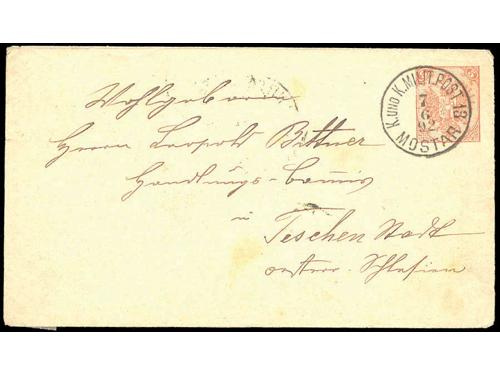 K. UND K. MILIT. POST 18
7
6
92
MOSTAR
Wohlgeboren
Herrn Leopold Bittner
Handlungs-Comis
in
Teschen Stadt
oesterr. Schlesien